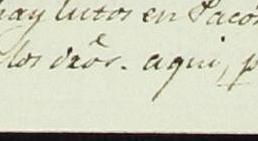 hay lutos en Pacos
los dros. aqui, p